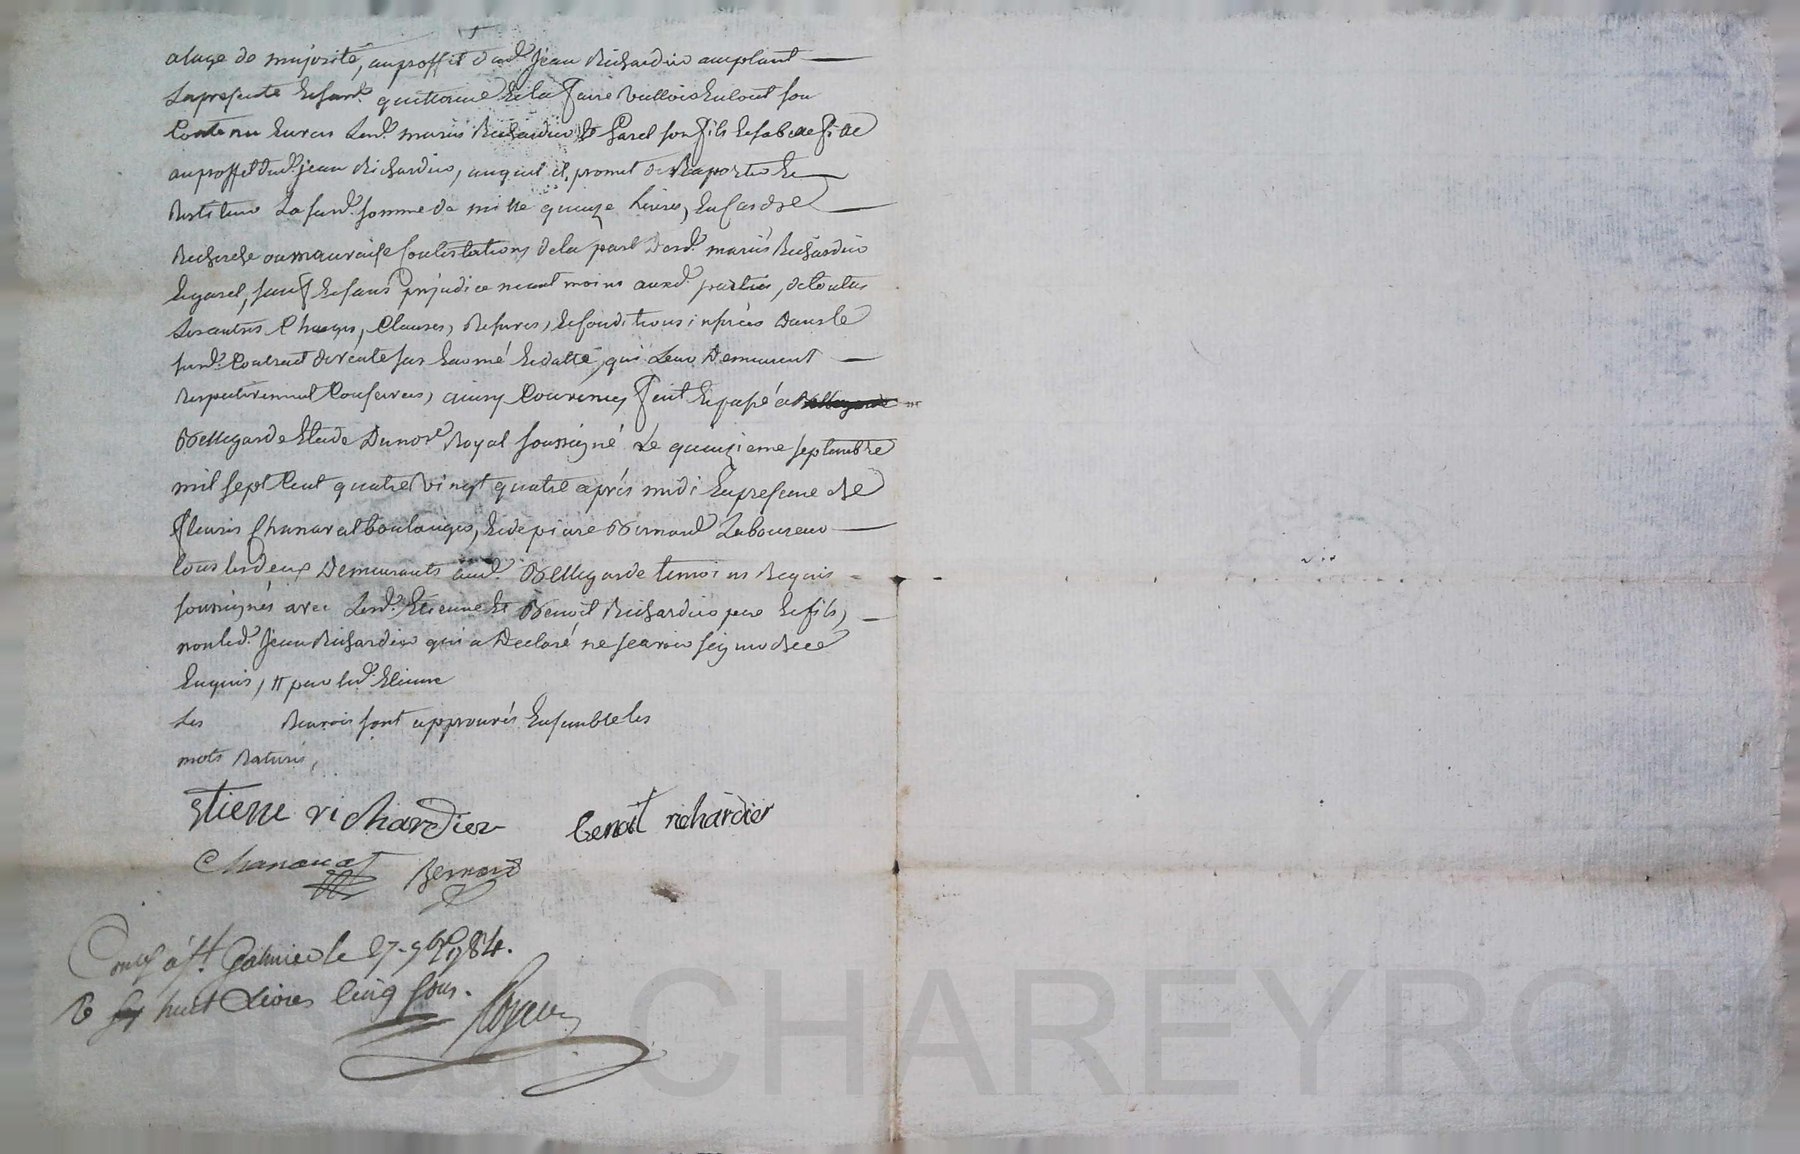 alage de majorité, au proffit dud. Jean Richardier acceptant
la presente Ensemb. quittance Et la faire valloir En tout son
Contenu Envers Lesd. mariés Richardier Et Garel son fils Et sa belle fille
au proffit dud. jean Richardier, auquel il promet de Raporter Et
Restituer La susd. somme de mille quinze Livres, En Cas de
Recherche ou mauvaise Contestations de la part Desd. mariés Richardier
Et garel, sauf Et sans prejudice neant moins auxd. parties, de toutes
Les autres Charges, Clauses, Reserves, Et Conditions inserées Dans le
susd. Contract de vente sus Enoncé Et datté, qui Leur Demeurent
Respectivement Conservées, ainsy Convenu, fait Et passé a
Bellegarde Etude Du nore. Royal soussigné Le quinzieme septembre
mil sept Cent quatre vingt quatre après midi En presence de
fleuris Chanavat boulanger, Et de pierre Bernard Laboureur
tous Les deux Demeurants aud. Bellegarde temoins Requis
soussignés avec Lesd. Etienne Et Benoit Richardier pere Et fils,
non led. Jean Richardier qui a Declaré ne scavoir signer de ce
Enquis, # par led. Etienne
Les Renvois sont approuvés Ensemble les
mots Raturés,
Etiene richardier benoit richardier
Chanavat Bernard
Conlé à St. Galmier le 27. 7bre 1784.
R huit Livres Cinq sous.
Pascal CHAREYRON